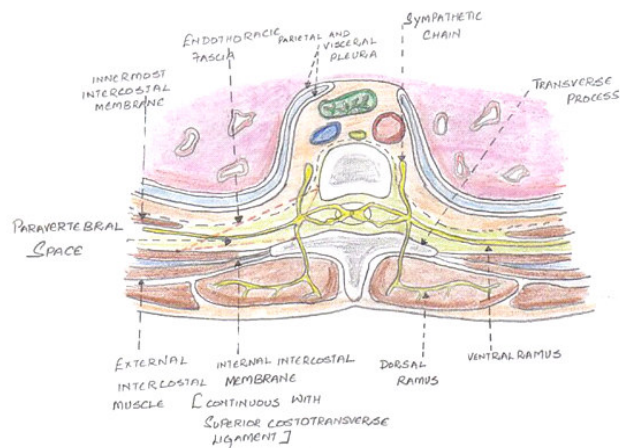 INNERMOST
INTERCOSTAL
MEMBRANE
ENDOTHORACIC
FASCIA
PARIETAL AND
VISCERAL
PLEURIA
SYMPATHETIC
CHAIN
TRANSVERSE
PROCESS
PARAVERTEBRAL
SPACE
EXTERNAL
INTERCOSTAL
MUSCLE
INTERNAL INTERCOSTAL
MEMBRANE
[CONTINUOUS WITH
SUPERIOR COSTOTRANSVERSE
LIGAMENT]
DORSAL
RAMUS
VENTRAL RAMUS